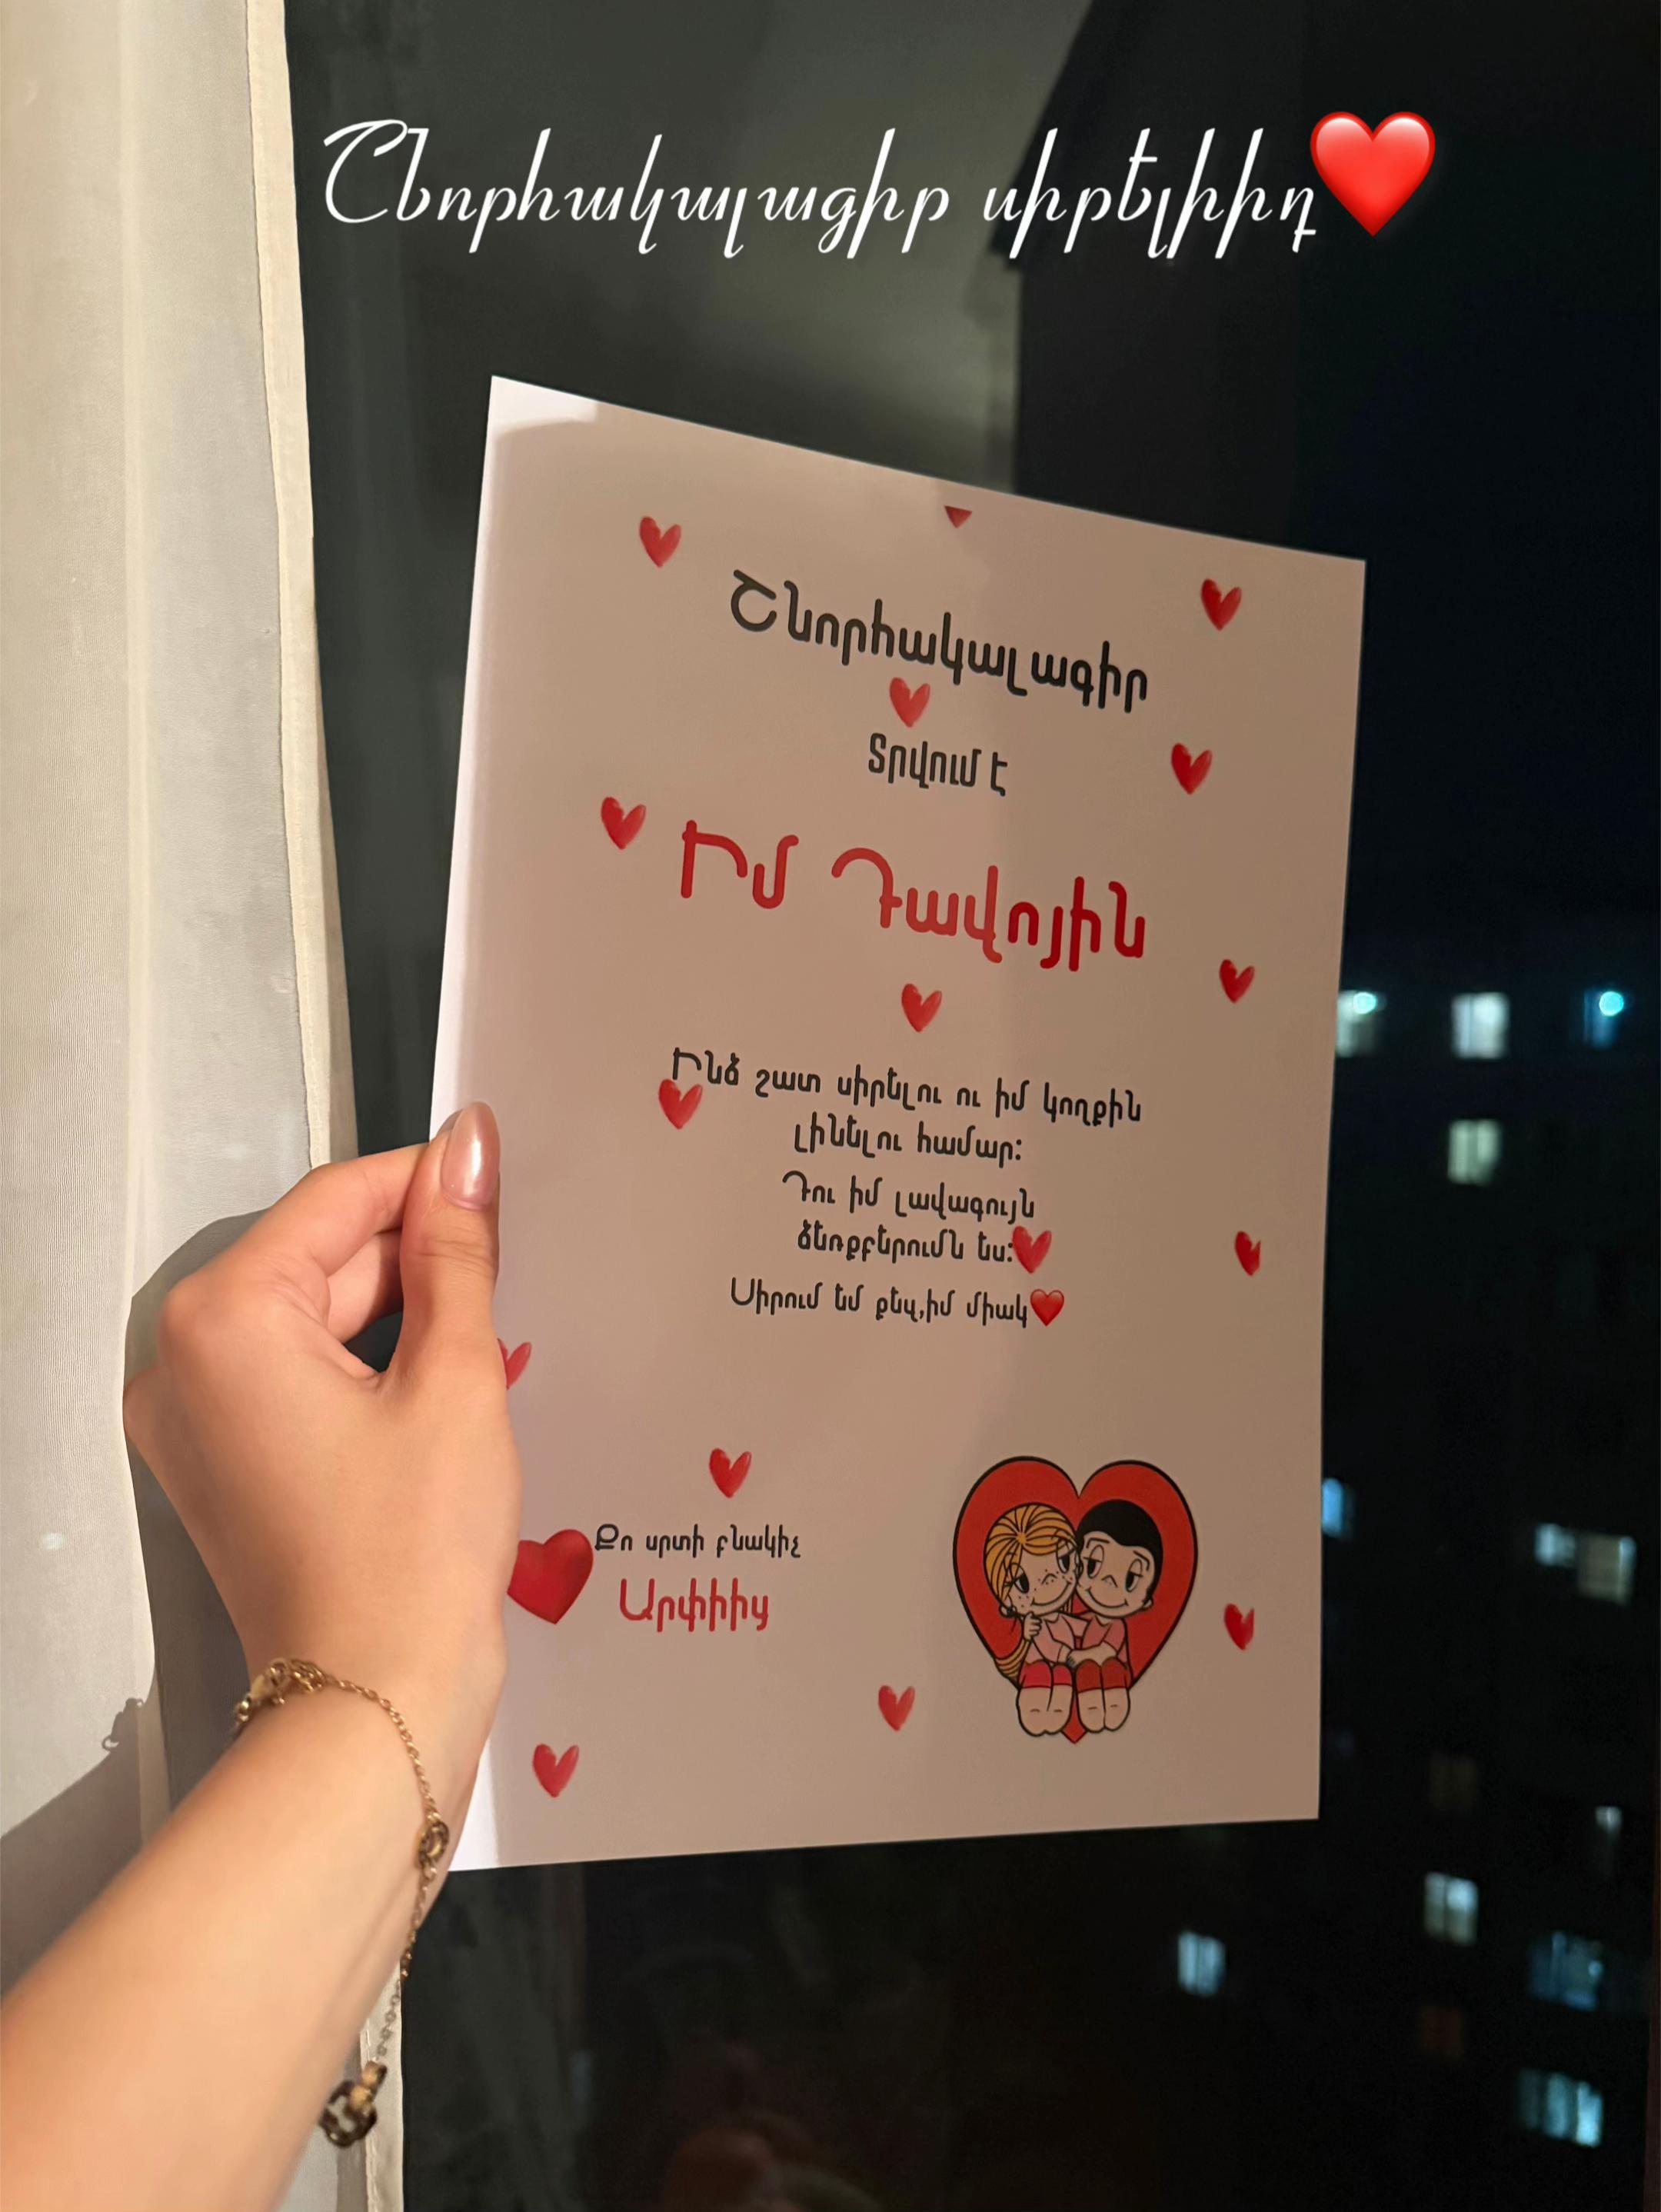 Շնորհակալագիր սիրելիիդ❤️
Շնորհակալագիր
Տրվում է
Իմ Դավոյին
Ինձ շատ սիրելու ու իմ կողքին
լինելու համար:
Դու իմ լավագույն
ձեռքբերումն ես:
Սիրում եմ քեզ,իմ միակ❤️
Քո սրտի բնակիչ
Արփիից